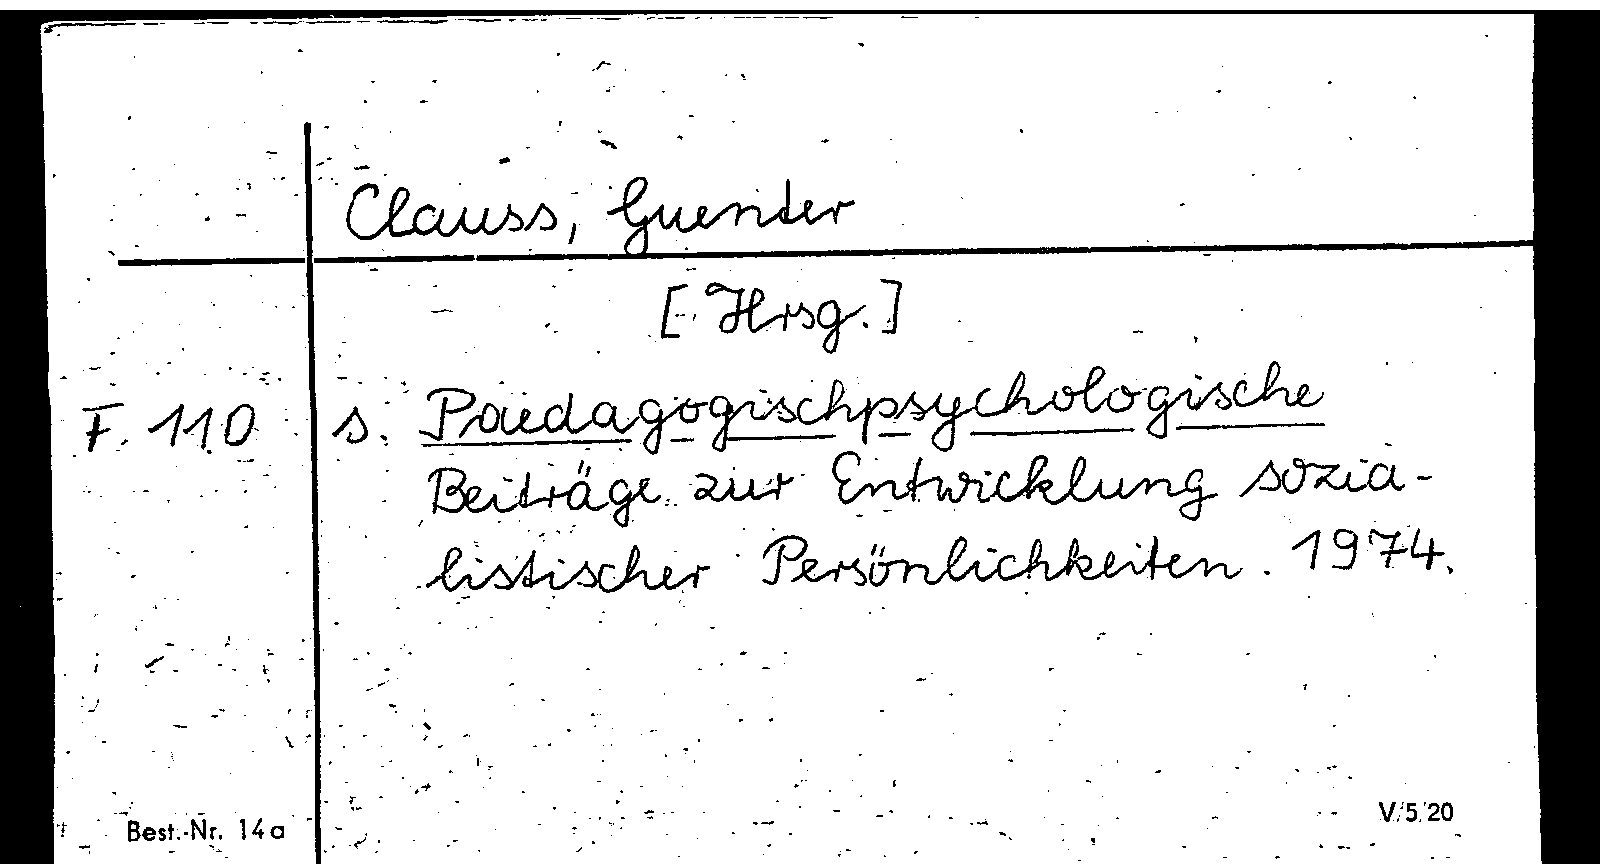 Clauss, Guenter
[Hrsg.]
F. 110 s. Paedagogischpsychologische
Beiträge zur Entwicklung sozia-
listischer Persönlichkeiten. 1974.
Best.-Nr. 14a V/5/20